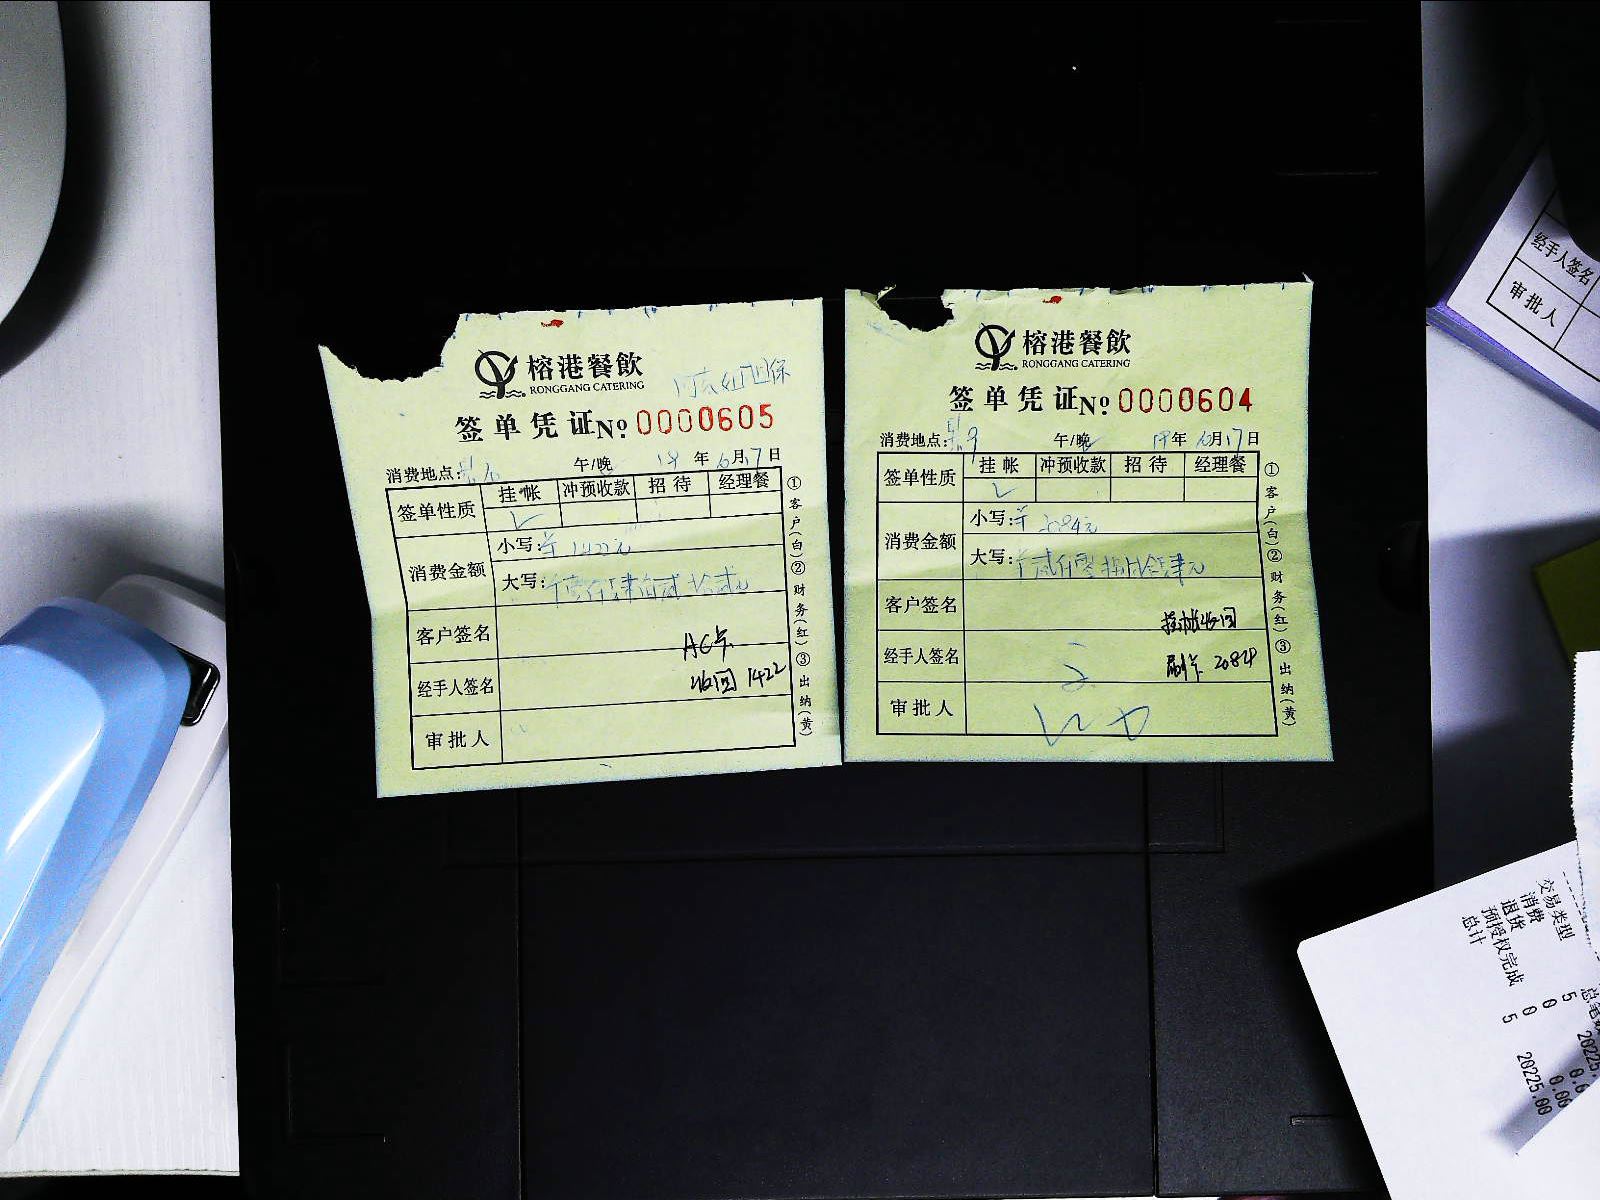 榕港餐飲
RONGGANG CATERING
签单凭证 No 0000605
消费地点: 午/晚 年6月17日
签单性质 挂帐 冲预收款 招待 经理餐
消费金额 小写: 1422元
大写:
客户签名
AC卡
经手人签名 收回 1422
审批人
①客户(白)②财务(红)③出纳(黄)
榕港餐飲
RONGGANG CATERING
签单凭证 No 0000604
消费地点: 9 午/晚 年6月17日
签单性质 挂帐 冲预收款 招待 经理餐
消费金额 小写: 2084元
大写:
客户签名
挂帐收回
经手人签名 刷卡 2084
审批人
①客户(白)②财务(红)③出纳(黄)
经手人签名
审批人
交易类型
消费 5
退货 0 0.00
预授权完成 0 0.00
总计 5 20225.00